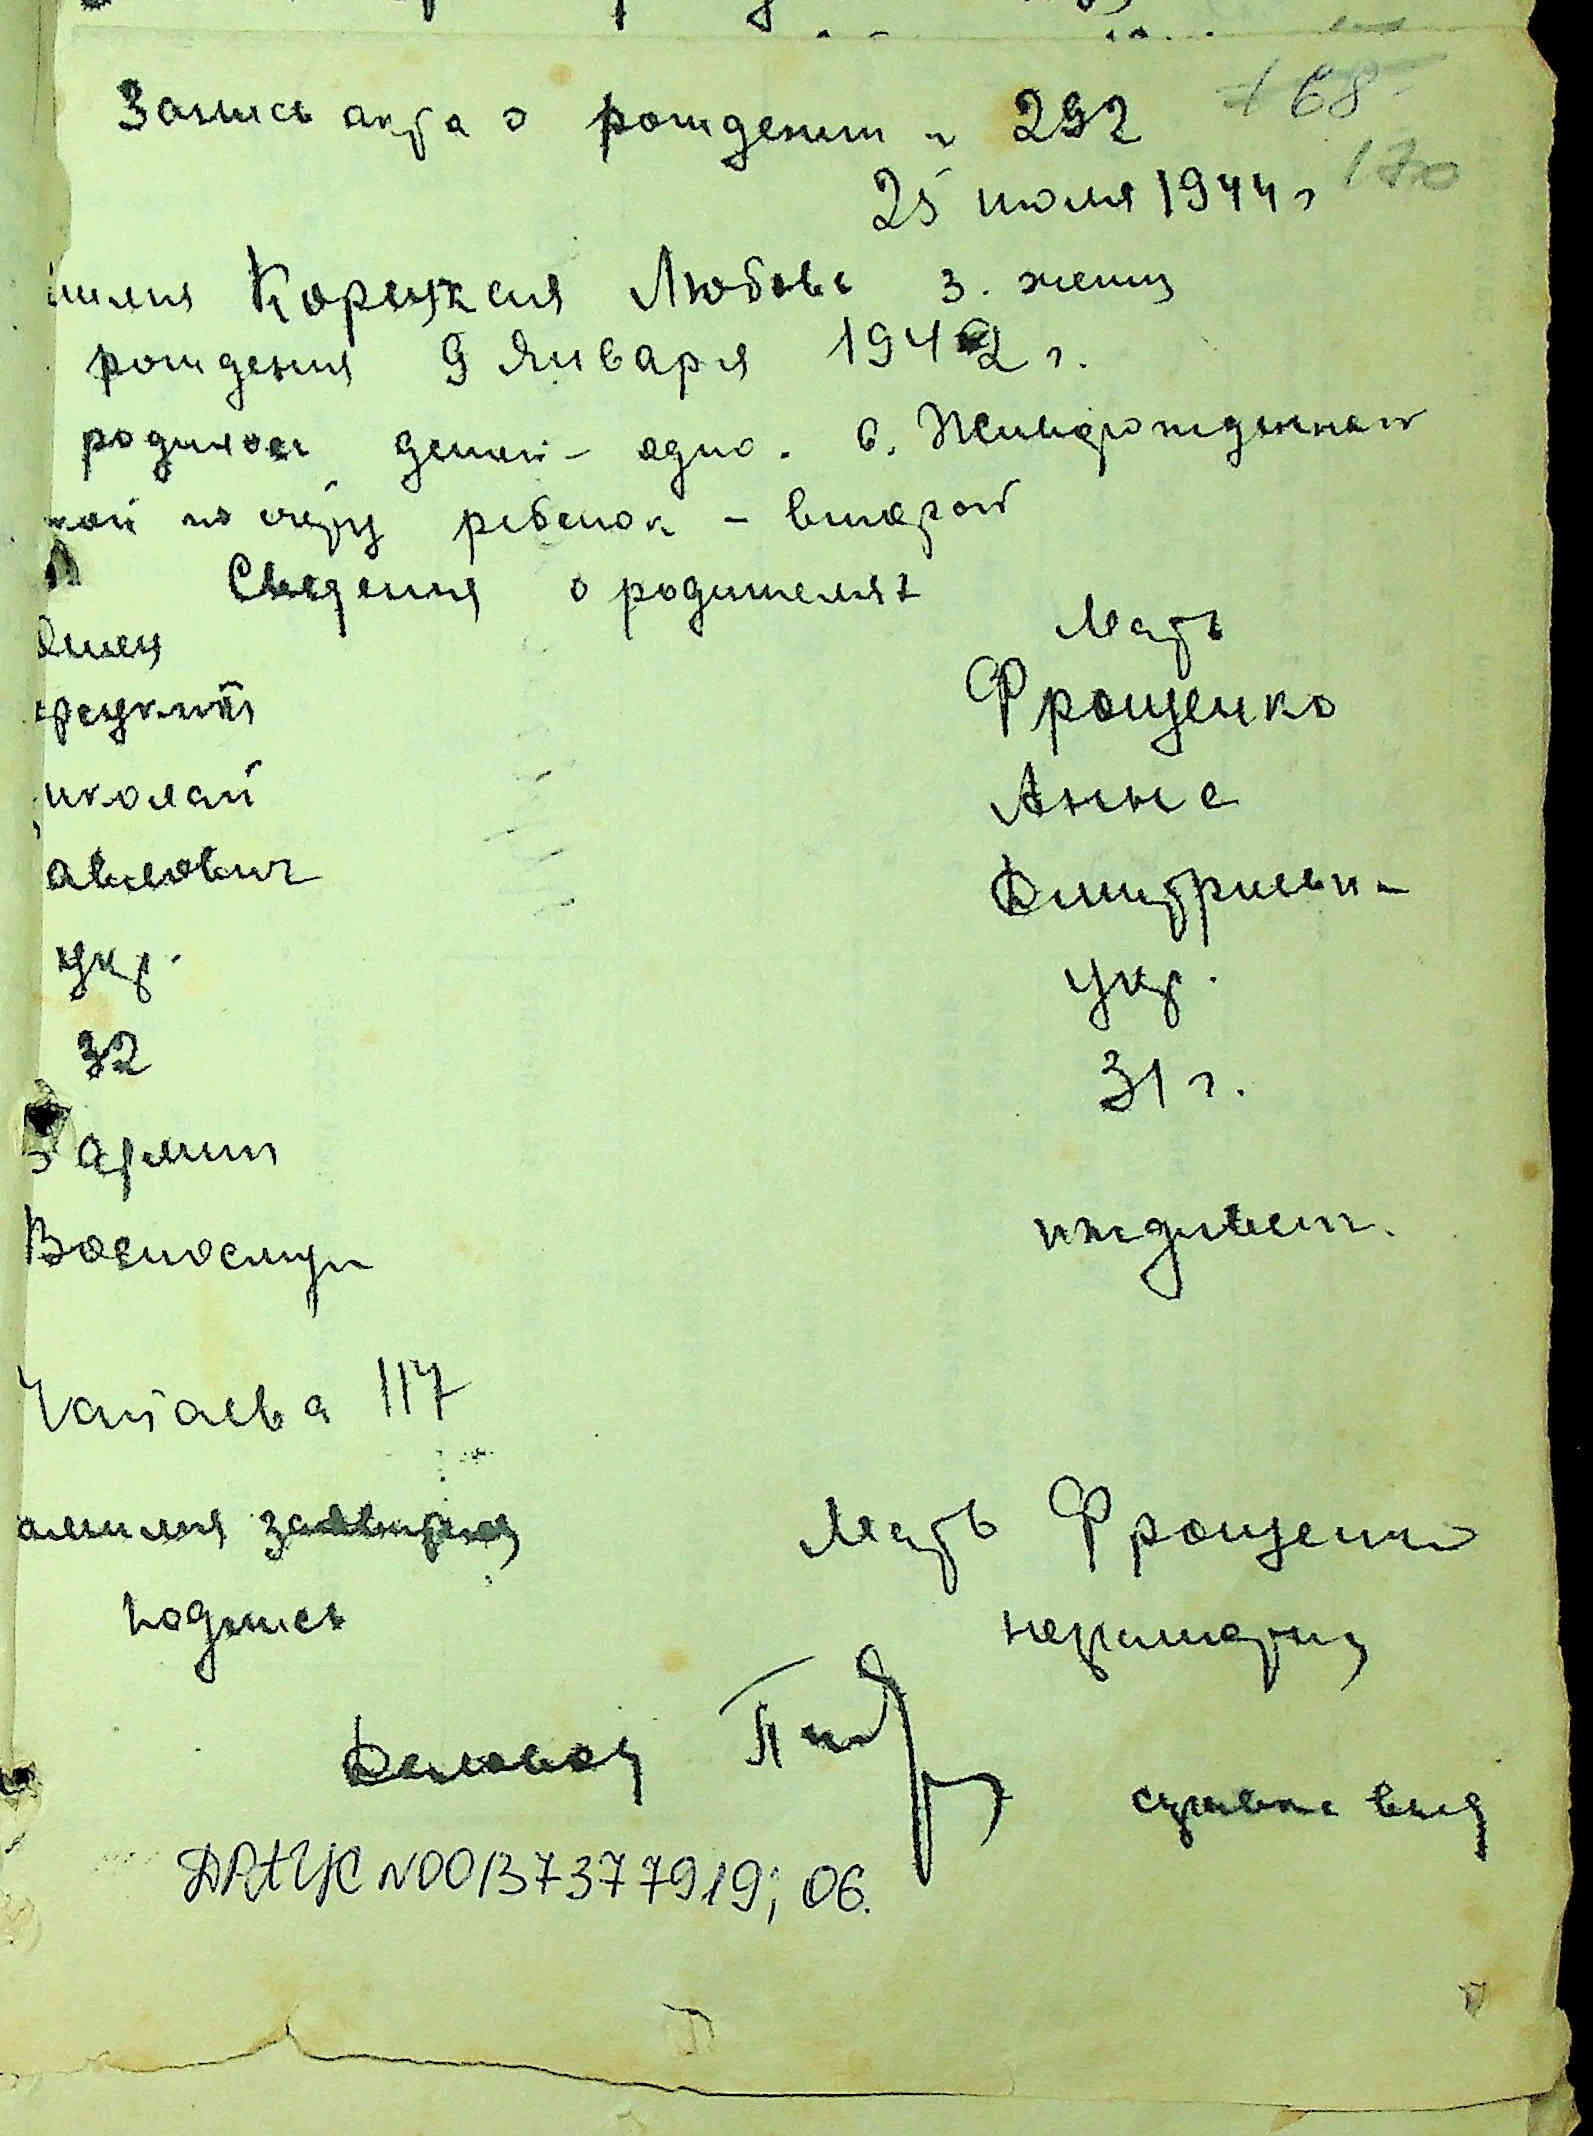 168
Запись акта о рождении № 292
170
25 июля 1944 г
милия Корецкая Любовь 3. женщ
рождения 9 Января 1942 г.
родилось детей - одно. 6. Живорожденный
кой по счёту ребенок - второй
Сведения о родителях
Отец Мать
рецкий Фрощенко
иколай Анна
авлович Дмитриевн
укр. укр.
32 31 г.
Армии
Военнослуж иждивен.
Чапаева 117
амилия заявителя Мать Фрощенко
подпись неграмотна
Деловод
ДРАЦС N00137377919; 06.